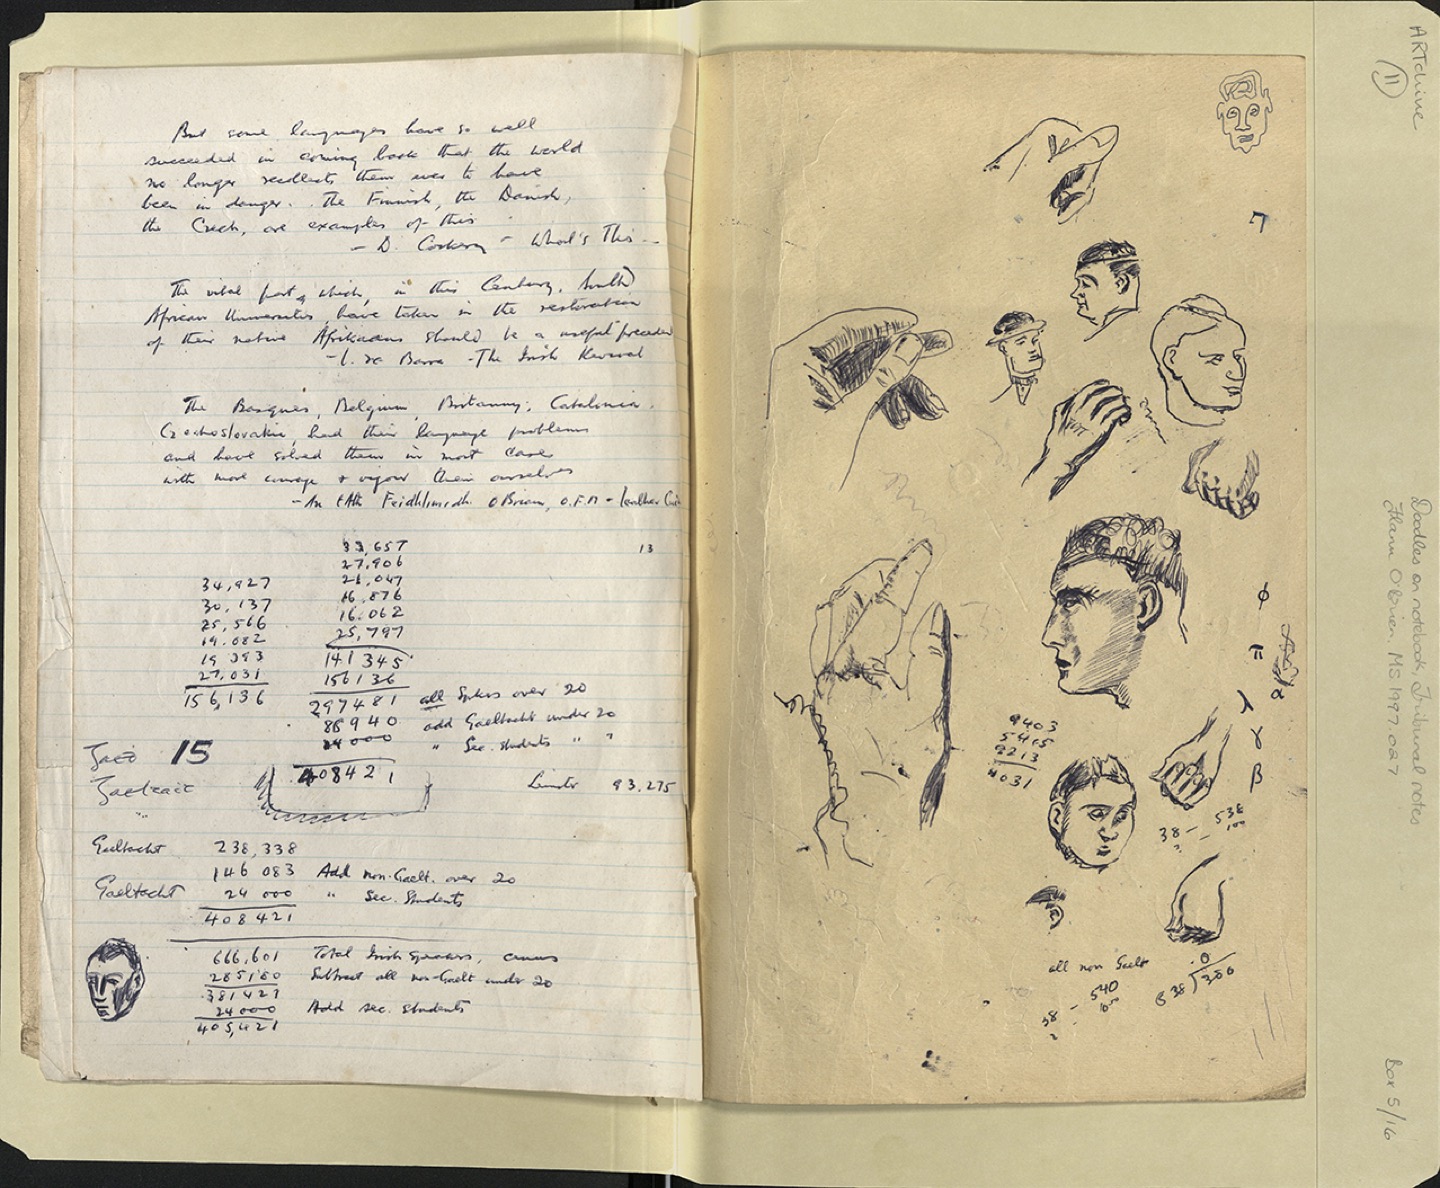 But some languages have so well
succeeded in coming back that the world
no longer recollects them ever to have
been in danger. The Finnish, the Danish,
the Czech, are examples of this
- D. Corkery - What's This
The vital part which, in this Century, South
African Universities, have taken in the restoration
of their native Afrikaans should be a useful preceden
Barra - The Irish Revival
The Basques, Belgium, Britanny, Catalonia.
Czechoslovakia, had their language problems
and have solved them in most cases
with more courage & vigour than ourselves
- An tAth Feidhlimidh O Briain, O.F.M -
13
34,927
30,137
25,566
19.082
19 393
27,031
156,136
33,657
27,906
21,047
16,876
16.062
25,797
141 345
156136
297481 all Spkrs over 20
86940 add Gaeltacht under 20
24000 " Sec. students " "
408421
15
Leinster 93,275
Gaeltacht 238,338
146 083 Add non-Gaelt. over 20
Gaeltacht 24 000 " Sec. Students
408421
666,601 Total Irish speakers, census
285180 Subtract all non-Gaelt under 20
381421
24000 Add sec. students
405,421
7
φ
π
λ
γ
β
α
9403
5415
9213
4031
38 - 538
100
all non Gaelt
540
38 -
838)300
ARTchive
11
Doodles on notebook, Tribunal notes
Flann O'Brien, MS 1997.027
Box 5/16